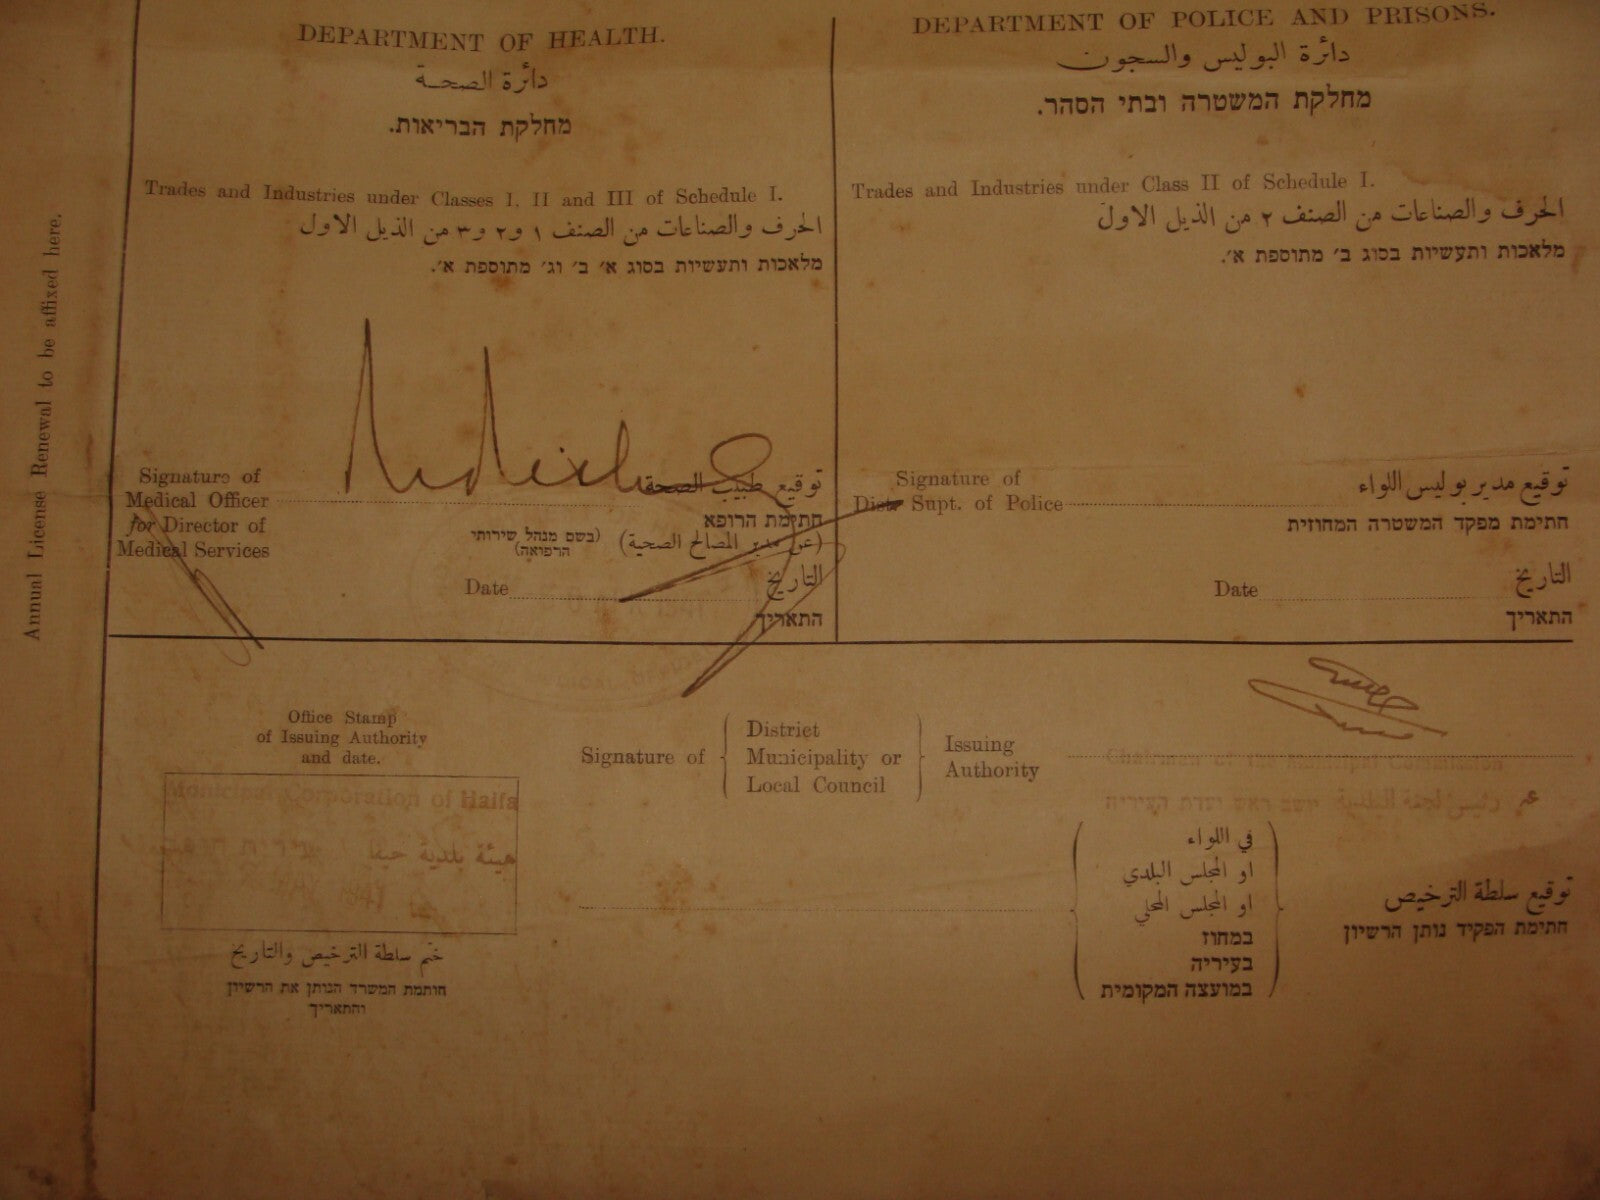 DEPARTMENT OF HEALTH.
دائرة الصحة
מחלקת הבריאות.
Trades and Industries under Classes I, II and III of Schedule I.
الحرف والصناعات من الصنف ١ و٢ و٣ من الذيل الاول
מלאכות ותעשיות בסוג א׳ ב׳ וג׳ מתוספת א׳.
Signature of
Medical Officer
for Director of
Medical Services
توقيع طبيب الصحة
חתימת הרופא
(عن مدير المصالح الصحية)
(בשם מנהל שירותי
הרפואה)
Date
التاريخ
התאריך
DEPARTMENT OF POLICE AND PRISONS.
دائرة البوليس والسجون
מחלקת המשטרה ובתי הסהר.
Trades and Industries under Class II of Schedule I.
الحرف والصناعات من الصنف ٢ من الذيل الاول
מלאכות ותעשיות בסוג ב׳ מתוספת א׳.
Signature of
Distr Supt. of Police
توقيع مدير بوليس اللواء
חתימת מפקד המשטרה המחוזית
Date
التاريخ
התאריך
Annual License Renewal to be affixed here.
Office Stamp
of Issuing Authority
and date.
Municipal Corporation of Haifa
هيئة بلدية حيفا
ختم سلطة الترخيص والتاريخ
חותמת המשרד הנותן את הרשיון
והתאריך
Signature of
District
Municipality or
Local Council
Issuing
Authority
Chairman of the Municipal Commission
رئيس لجنة البلدية יושב ראש ועדת העיריה
في اللواء
او المجلس البلدي
او المجلس المحلي
במחוז
בעיריה
במועצה המקומית
توقيع سلطة الترخيص
חתימת הפקיד נותן הרשיון